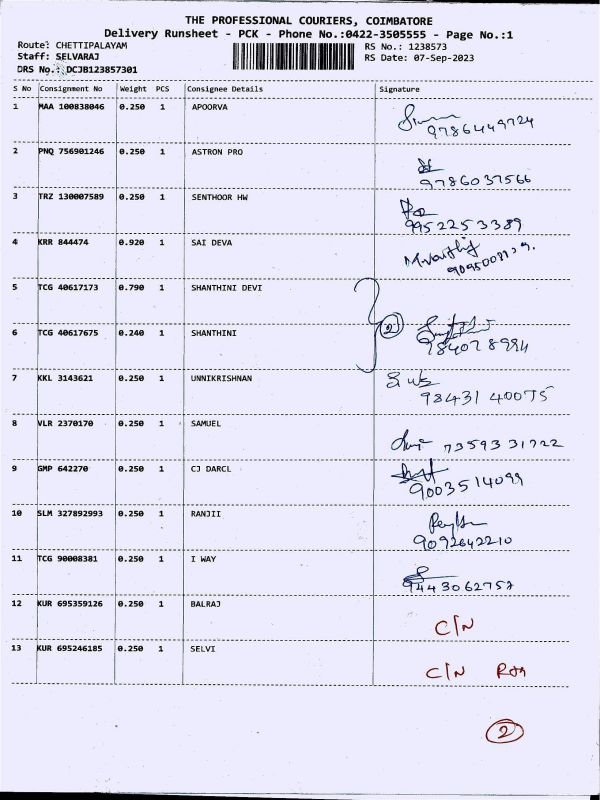 THE PROFESSIONAL COURIERS, COIMBATORE
Delivery Runsheet - PCK - Phone No.:0422-3505555 - Page No.:1
Route: CHETTIPALAYAM RS No.: 1238573
Staff: SELVARAJ RS Date: 07-Sep-2023
DRS No.: DCJB123857301
S No Consignment No Weight PCS Consignee Details Signature
1 MAA 100838046 0.250 1 APOORVA
9786449724
2 PNQ 756901246 0.250 1 ASTRON PRO
9786037566
3 TRZ 130007589 0.250 1 SENTHOOR HW
9952253389
4 KRR 844474 0.920 1 SAI DEVA
5 TCG 40617173 0.790 1 SHANTHINI DEVI
6 TCG 40617675 0.240 1 SHANTHINI 2
7 KKL 3143621 0.250 1 UNNIKRISHNAN
98431 40075
8 VLR 2370170 0.250 1 SAMUEL
73593 31722
9 GMP 642270 0.250 1 CJ DARCL
9003514099
10 SLM 327892993 0.250 1 RANJII
9092642210
11 TCG 90008381 0.250 1 I WAY
9443062757
12 KUR 695359126 0.250 1 BALRAJ C/N
13 KUR 695246185 0.250 1 SELVI C/N
2